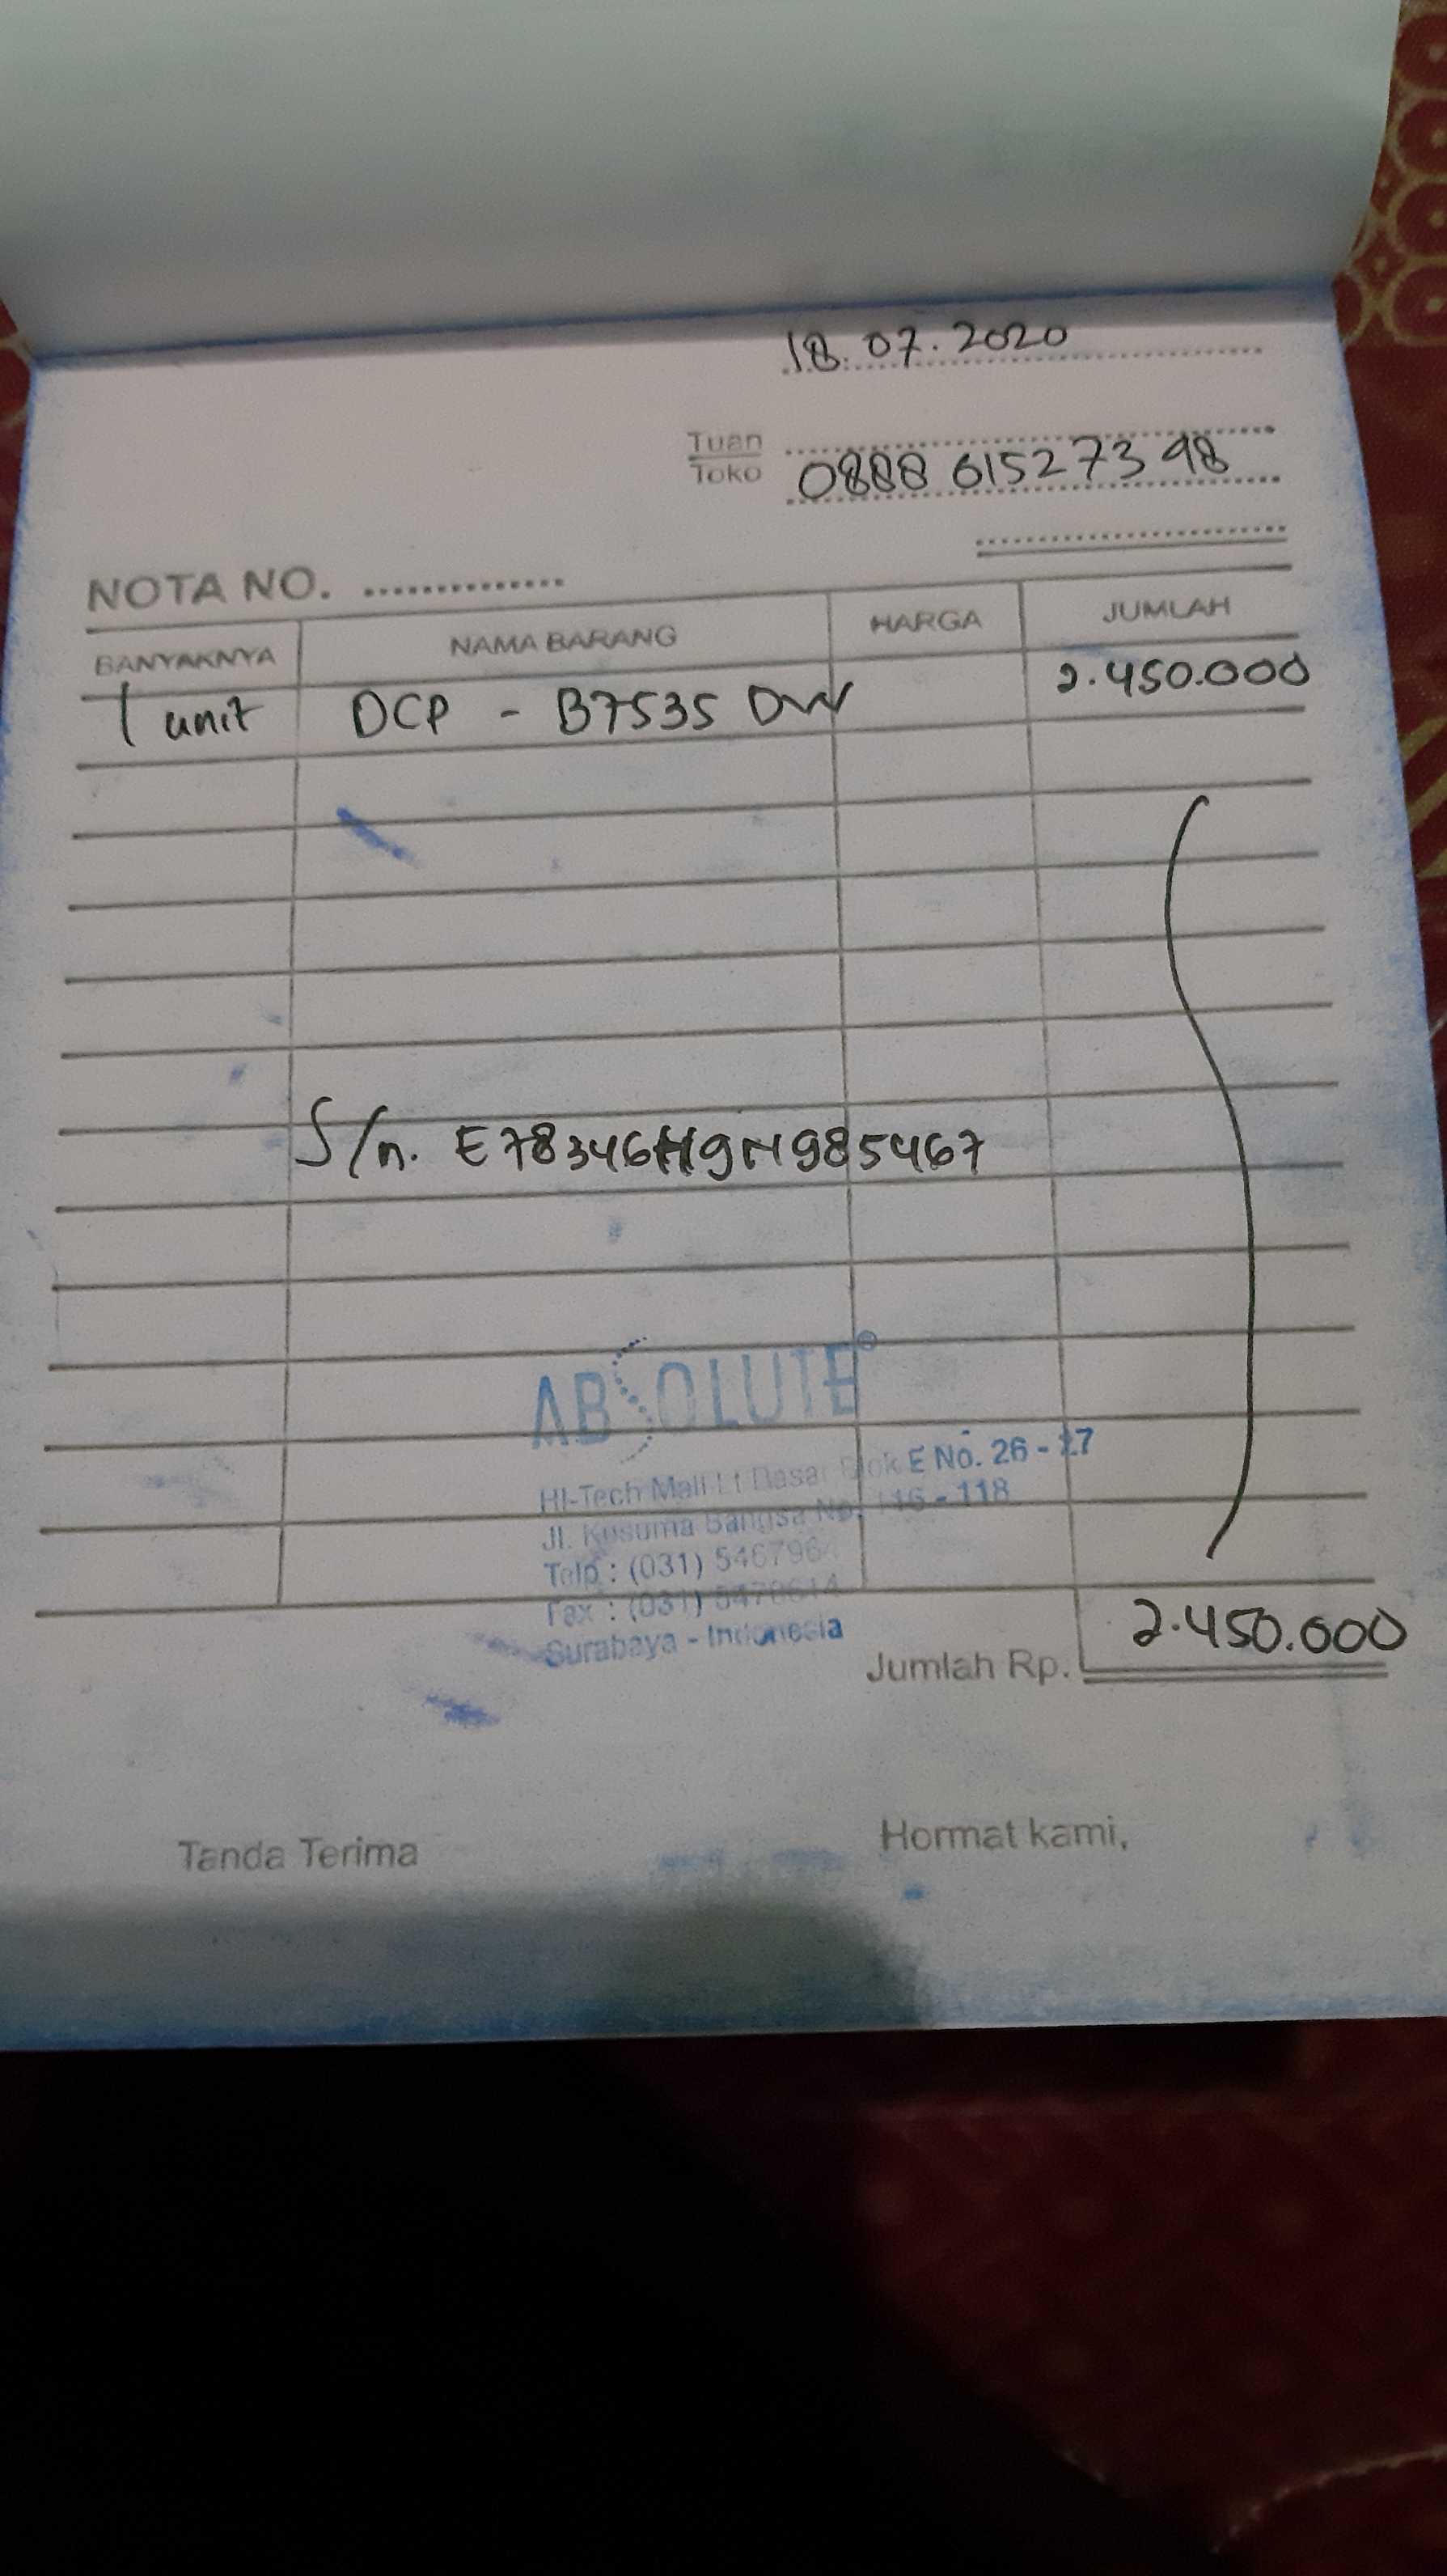 18.07.2020
Tuan
Toko
0888 61527398
NOTA NO. ...............
BANYAKNYA NAMA BARANG HARGA JUMLAH
1 unit DCP - B7535 DW 2.450.000
S/n. E78346H9N985467
ABSOLUTE®
HI-Tech Mall Lt Dasar Blok E No. 26 - 27
Jl. Kusuma Bangsa No. 116 - 118
Telp : (031) 5467964
Fax : (031) 5470614
Surabaya - Indonesia
Jumlah Rp. 2.450.000
Tanda Terima Hormat kami,